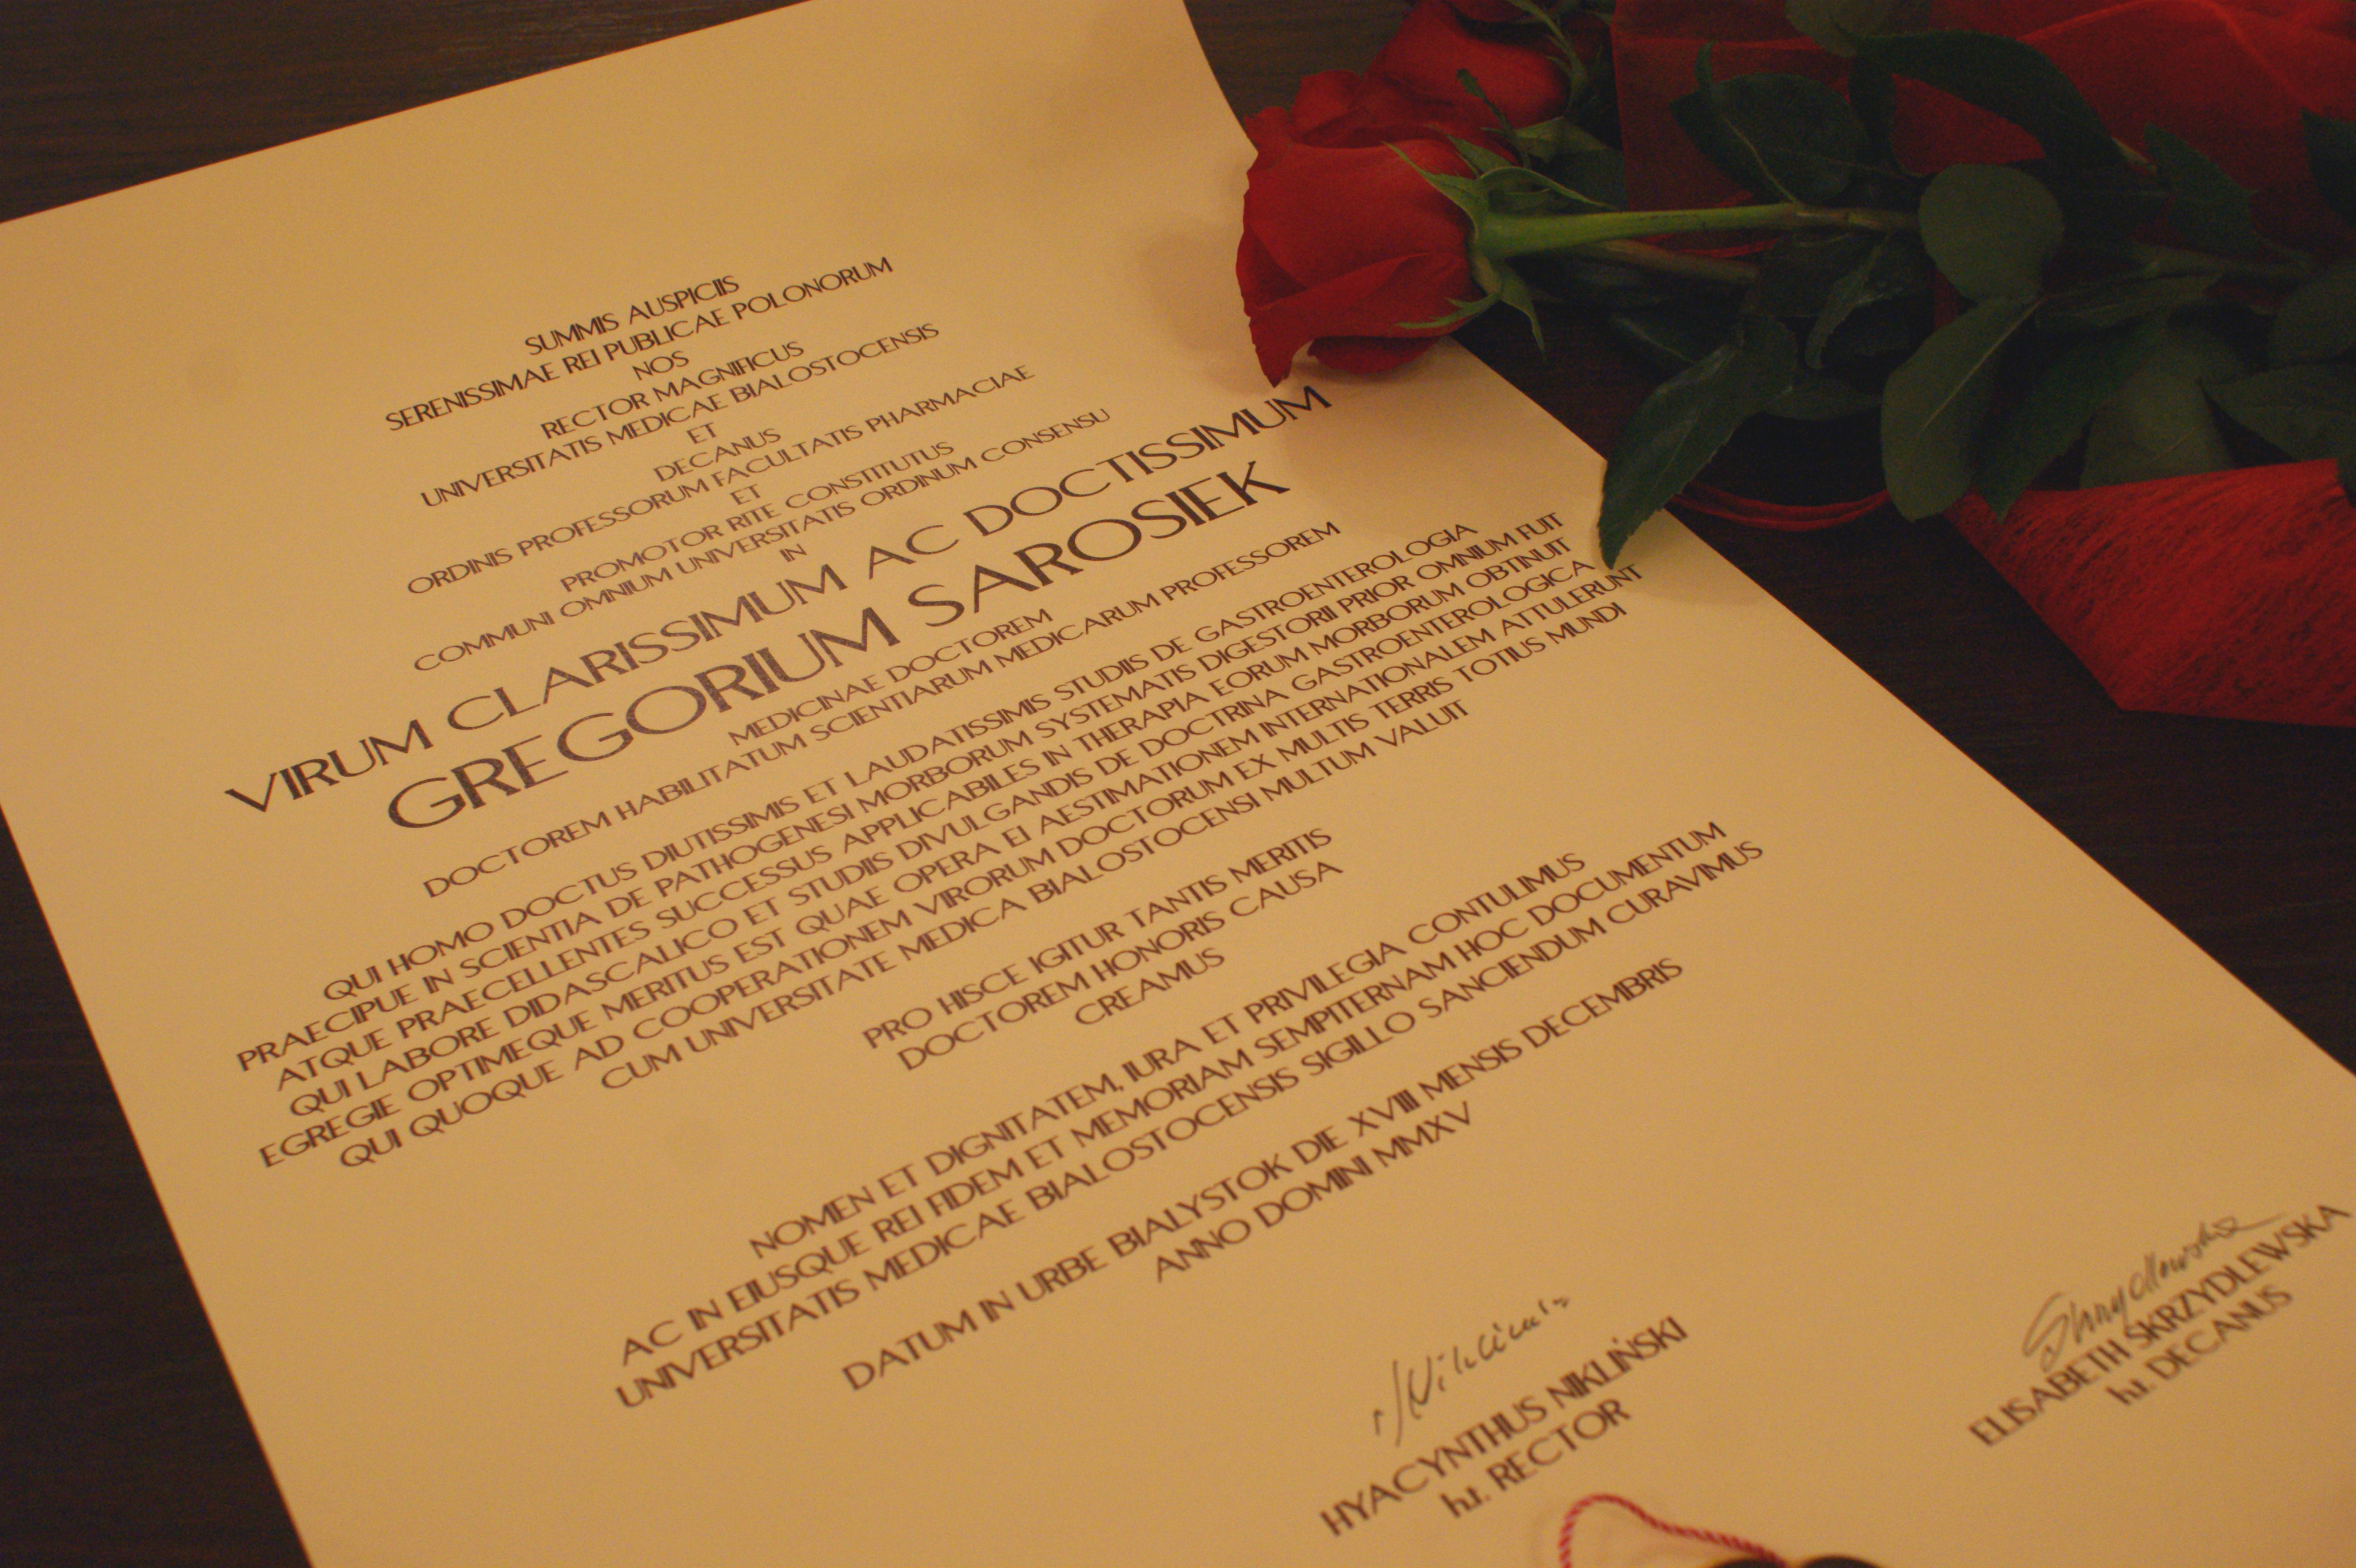 SUMMIS AUSPICIIS
SERENISSIMAE REI PUBLICAE POLONORUM
NOS
RECTOR MAGNIFICUS
UNIVERSITATIS MEDICAE BIALOSTOCENSIS
ET
DECANUS
ORDINIS PROFESSORUM FACULTATIS PHARMACIAE
ET
PROMOTOR RITE CONSTITUTUS
COMMUNI OMNIUM UNIVERSITATIS ORDINUM CONSENSU
IN
VIRUM CLARISSIMUM AC DOCTISSIMUM
GREGORIUM SAROSIEK
MEDICINAE DOCTOREM
DOCTOREM HABILITATUM SCIENTIARUM MEDICARUM PROFESSOREM
QUI HOMO DOCTUS DIUTISSIMIS ET LAUDATISSIMIS STUDIIS DE GASTROENTEROLOGIA
PRAECIPUE IN SCIENTIA DE PATHOGENESI MORBORUM SYSTEMATIS DIGESTORII PRIOR OMNIUM FUIT
ATQUE PRAECELLENTES SUCCESSUS APPLICABILES IN THERAPIA EORUM MORBORUM OBTINUIT
QUI LABORE DIDASCALICO ET STUDIIS DIVULGANDIS DE DOCTRINA GASTROENTEROLOGICA
EGREGIE OPTIMEQUE MERITUS EST QUAE OPERA EI AESTIMATIONEM INTERNATIONALEM ATTULERUNT
QUI QUOQUE AD COOPERATIONEM VIRORUM DOCTORUM EX MULTIS TERRIS TOTIUS MUNDI
CUM UNIVERSITATE MEDICA BIALOSTOCENSI MULTUM VALUIT
PRO HISCE IGITUR TANTIS MERITIS
DOCTOREM HONORIS CAUSA
CREAMUS
NOMEN ET DIGNITATEM, IURA ET PRIVILEGIA CONTULIMUS
AC IN EIUSQUE REI FIDEM ET MEMORIAM SEMPITERNAM HOC DOCUMENTUM
UNIVERSITATIS MEDICAE BIALOSTOCENSIS SIGILLO SANCIENDUM CURAVIMUS
DATUM IN URBE BIALYSTOK DIE XVIII MENSIS DECEMBRIS
ANNO DOMINI MMXV
HYACYNTHUS NIKLIŃSKI
h.t. RECTOR
Skrzydlewska
ELISABETH SKRZYDLEWSKA
h.t. DECANUS